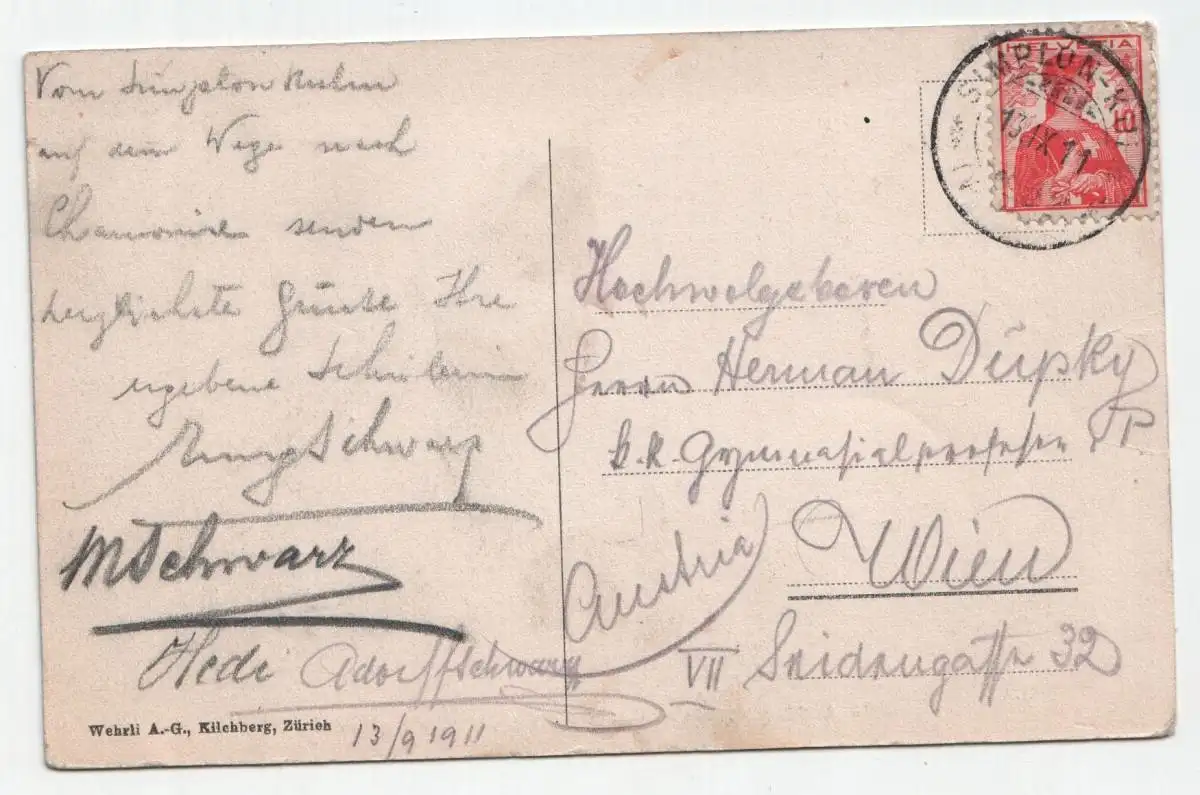 Vom Simplon Kulm
auf dem Wege nach
Chamonix senden
herzlichste Grüße Ihre
ergebene Schülerin
Schwarz
M Schwarz
Hedi Adolf Schwarz
13/9 1911
Wehrli A.-G., Kilchberg, Zürich
HELVETIA
SIMPLON-K
13 IX 11
Hochwolgeboren
Herrn Herman Dupky
k.k. Gymnasialprofessor
Wien
Austria
VII Seidengasse 32